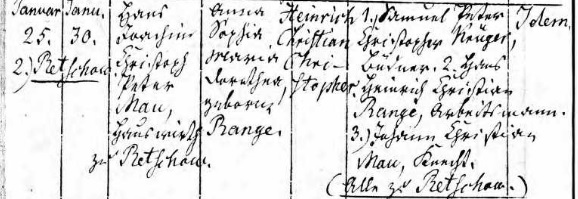 Januar Janu. Hans Anna Heinrich 1.) Samuel Peter Idem.
25. 30. Joachim Sophia Christian Christopher Krüger,
2.) Retschow. Christoph Maria Chri- Büdner. 2. Hans
Peter Dorothea, stopher. Heinrich Christian
Mau, geborne Range, Arbeitsmann.
Hauswirth Range. 3.) Johann Christian
zu Retschow. Mau, Knecht.
(Alle zu Retschow.)